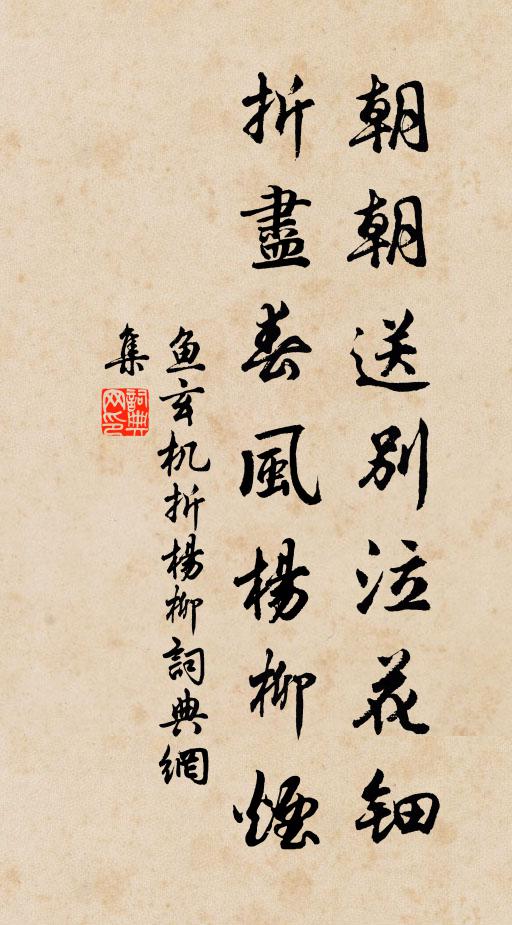 朝朝送別泣花鈿
折盡春風楊柳煙
鱼玄机折楊柳詞典網
集
詞典网印